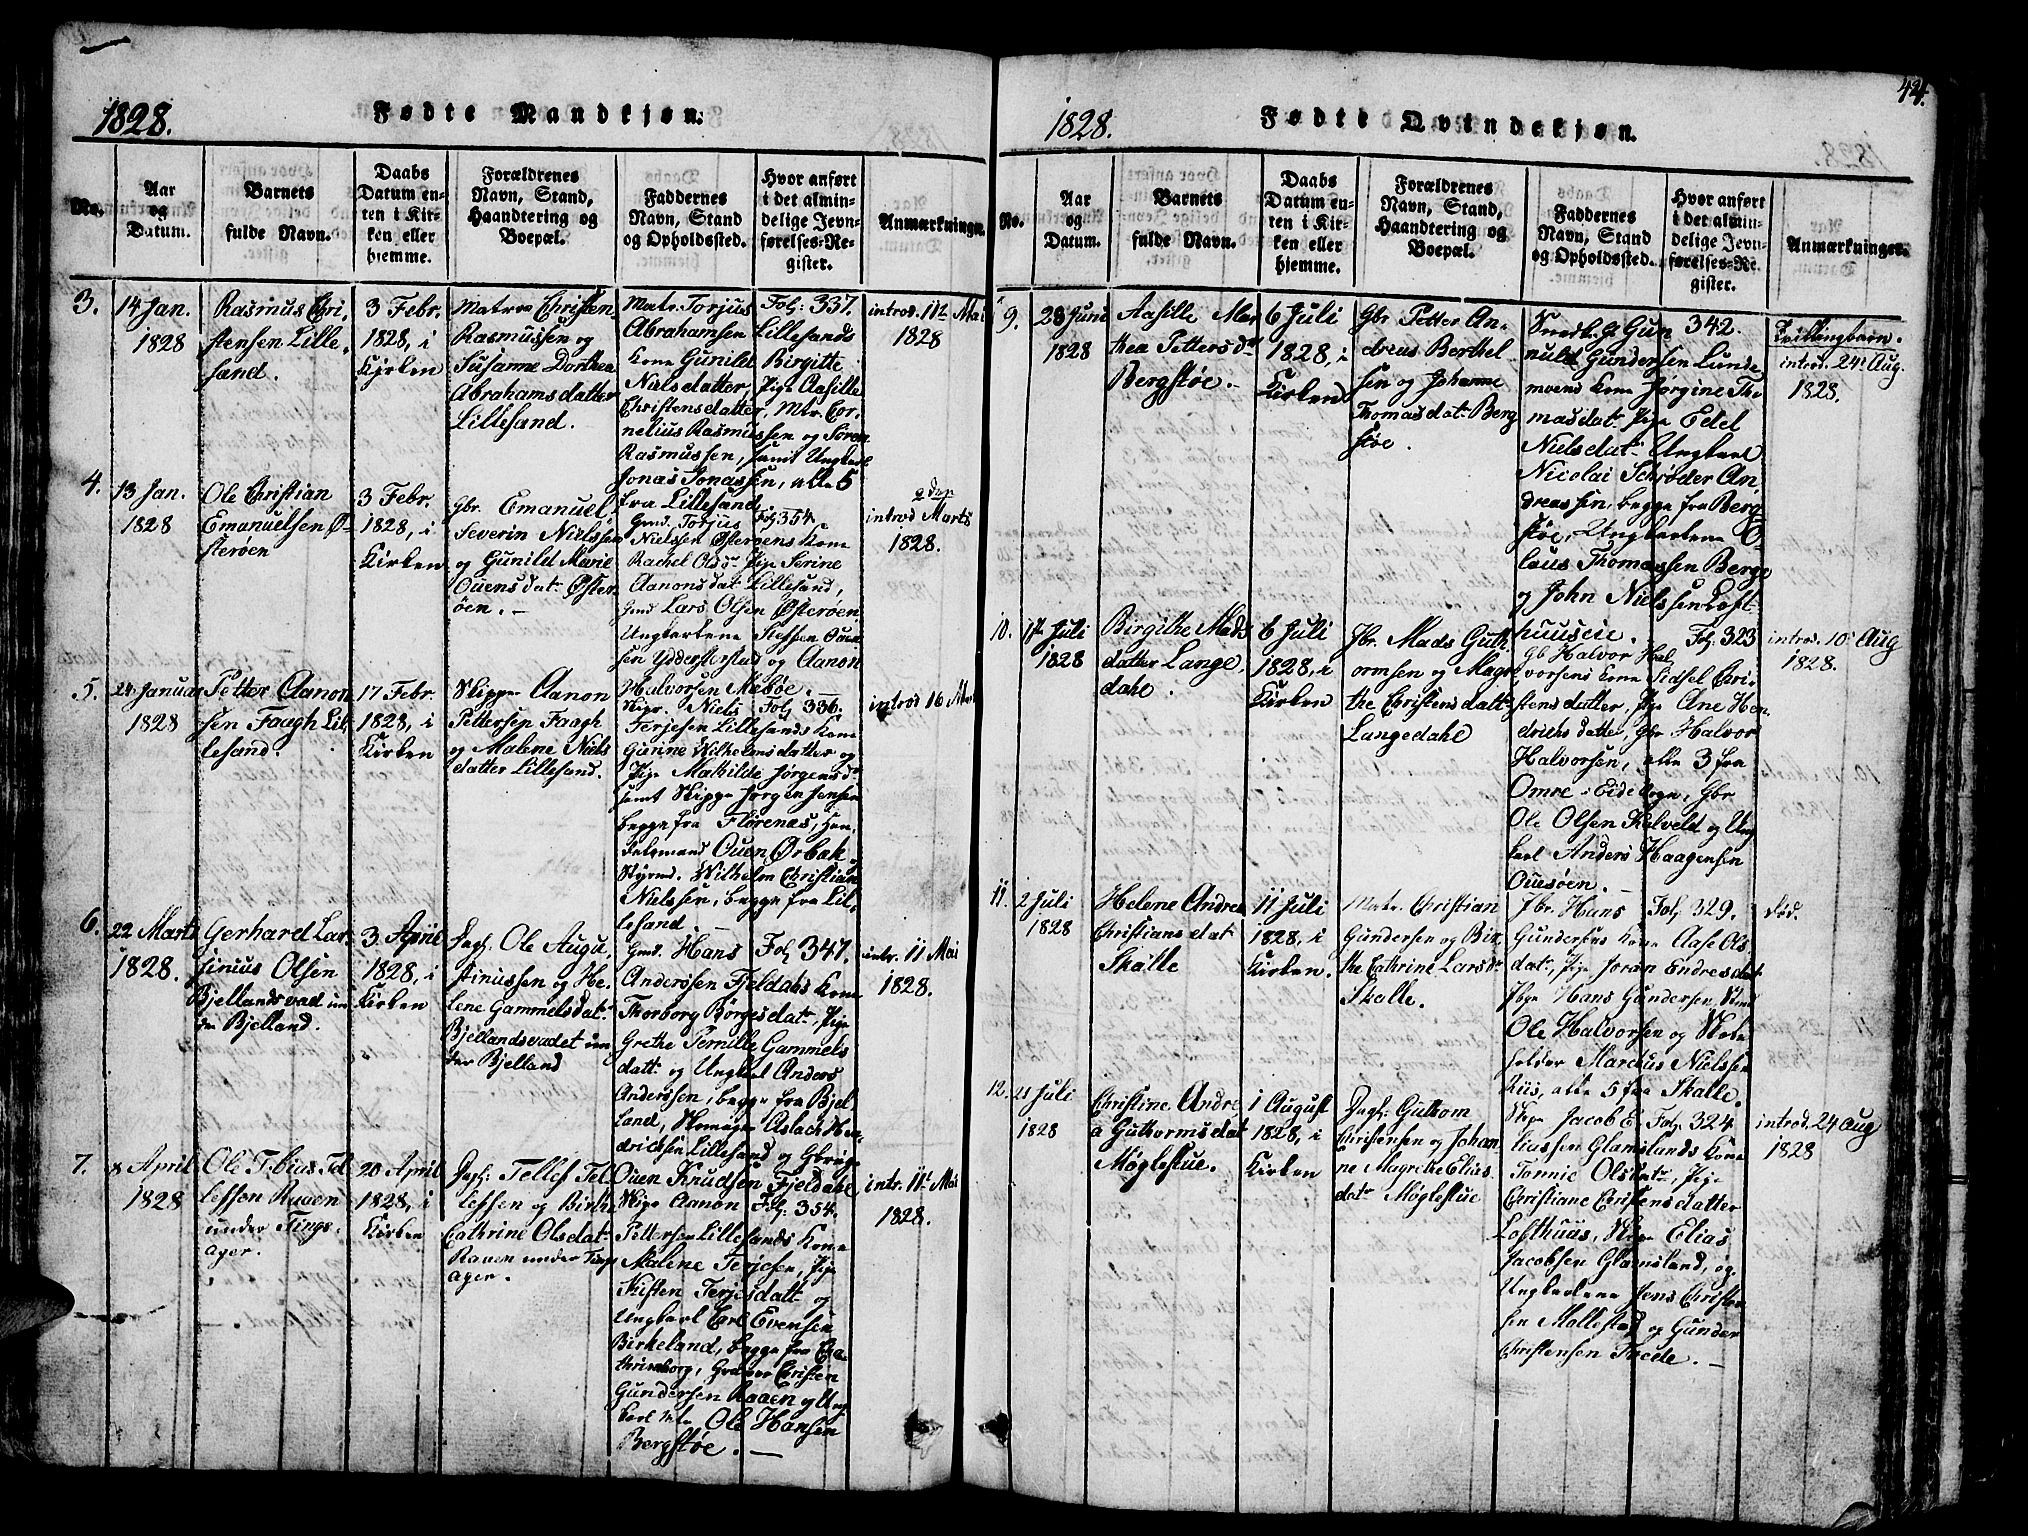 1828.
Fødte Mandkjøn.
No.
Aar
og
Datum.
Barnets
fulde Navn.
Daabs
Datum en-
ten i Kir-
ken eller
hjemme.
Forældrenes
Navn, Stand,
Haandtering og
Boepæl.
Faddernes
Navn, Stand
og Opholdssted.
Hvor anført
i det almin-
delige Jevn-
førelses-Re-
gister.
Anmærkninger.
3.
14 Jan.
1828
Rasmus Chri-
stensen Lille-
sand.
3 Febr.
1828, i
Kirken
Matros Christen
Rasmussen og
Susanne Dorthea
Abrahamsdatter
Lillesand.
Matr. Torjus
Abrahamsen Lillesands
Kone Gunild Birgitte
Nielsdatter, Pige Aasille
Christensdatter, Mtr. Cor-
nelius Rasmussen og Søren
Rasmussen, samt Ungkarl
Jonas Jonassen, alle 5
fra Lillesand
Fol: 337.
introd. 11te Mai
1828
4.
13 Jan.
1828
Ole Christian
Emanuelsen Ø-
sterøen
3 Febr.
1828, i
Kirken
Gbr. Emanuel
Severin Nielsen
og Gunild Marie
Ouensdat. Øster-
öen.
Gmd. Torjus
Nielsen Østerøens Kone
Rachel Olsdr Pige Serine
Aanonsdat Lillesand,
Gmd Lars Olsen Østerøen
Ungkarlene Steffen Ouen-
sen Ydderstøstad og Aanon
Halvorsen Mæbøe.
Fol 354
introd Marts
1828.
5.
24 Januar
1828
Petter Aanon
sen Faagh Lil-
lesand.
17 Febr.
1828, i
Kirken
Skipper Aanon
Pettersen Faagh
og Malene Niels
datter Lillesand.
Skipr. Niels
Terjesen Lillesands Kone
Gurine Wilhelmsdatter og
Pige Mathilde Jørgensdr
samt Skippr Jørgen Jensen
begge fra Flørenæs, Han-
delsmand Ouen Ørbæk
Styrmd. Wilhelm Christian
Nielsen, begge fra Lil-
lesand
Fol 336.
introd 16 Mar
6.
22 Marts
1828.
Gerhard Lar-
sinius Olsen
Bjellandsvad un-
der Bjelland.
3 April
1828, i
Kirken
Ole Augu-
stinussen og He-
lene Gammelsdat.
Bjellandsvadet un
der Bjelland
Gmd. Hans
Anderssen Fjeldahls Kone
Thorborg Børgesdatr, Pige
Grethe Pernille Gammels
datt og Ungkarl Anders
Anderssen, begge fra Bjel
land, Skomager Aslach Hen-
drichsen Lillesand og
Ouen Knudsen Fjeldahl
Fol 347.
intr. 11 Mai
1828.
7.
8 April
1828
Ole Tobias Tel
lefsen Raaen
under Tings-
ager.
20 April
1828, i
Kirken
Tellef Tel
lefsen og Birthe
Cathrine Olsdat
Raaen under Ting
ager.
Skipr Aanon
Pettersen Lillesands Kone
Malene Terjesen, Pige
Kisten Terjesdatt og
Ungkarl Carl Evensen
Birkeland, begge fra Ca-
thrineborg, Christen
Gundersen Raaen og Ung
karl Ole Hansen
Bergstøe.
Fol: 354.
intr. 11te Mai
1828.
1828.
Fødte Qvindekjøn.
42.
No.
Aar
og
Datum.
Barnets
fulde Navn.
Daabs
Datum en-
ten i Kir-
ken eller
hjemme.
Forældrenes
Navn, Stand,
Haandtering og
Boepæl.
Faddernes
Navn, Stand
og Opholdssted.
Hvor anført
i det almin-
delige Jevn-
førelses-Re-
gister.
Anmærkninger.
9.
28 Juni
1828
Aasille Mar
thea Pettersdr
Bergstøe.
6 Juli
1828, i
Kirken
Gbr Petter An-
dreas Berthel
sen og Johanne
Thomasdat Berg
støe.
Gun
nuld Gundersen Lunde
moens Kone Jørgine Tho
masdat, Pige Edel
Nielsdat Ungkarl
Nicolai Schrøder An
dreassen, begge fra Berg
støe, Ungkarlene O-
laus Thomassen Berge
og John Nielssen Loft
huuseie.
342.
Tvillingbarn.
introd. 24de Aug.
1828.
10.
1te Juli
1828
Birgithe Mads
datter Lange-
dahl.
6 Juli
1828, i
Kirken
Jbr. Mads Guth
ormsen og Magre
the Christensdatt
Langedahl
Gb Halvor Hal
vorsens Kone Sidsel Chri-
stensdatter, Pige Ane Hen
drichsdatter, Gbr Halvor
Halvorsen, alle 3 fra
Omre i Eide Sogn, Gbr
Ole Olsen Kalveld og Ung
karl Anders Haagensen
Ouesøen.
Fol: 323
introd. 10de Aug
1828.
11.
2 Juli
1828
Helene Andrea
Christiansdat
Skalle
11 Juli
1828, i
Kirken.
Matr. Christian
Gundersen og Bir-
the Cathrine Larsdr
Skalle.
Jbr. Hans
Gundersens Kone Aase Ols
dat, Pige Joran Endresdat
Pige Hans Gundersen,
Ole Halvorsen og
Marcus Nielsen
Riis, alle 5 fra Skalle.
Fol 329.
död.
12.
21 Juli
1828
Christine Andre
a Guthormsdat
Møglestue.
1 August
1828, i
Kirken
Guttorm
Christensen og Johan
ne Magrethe Elias
datr Møglestue
Skipr Jacob E-
liassen Glamslands Kone
Tonnie Olsdatr, Pige
Christiane Christensdatter
Lofthuus, Skipr Elias
Jacobsen Glamsland, og
Ungkarlene Jens Christen
sen Mollestad og Gunder
Christensen Tveide.
Fol 324
introd. 24 Aug
1828